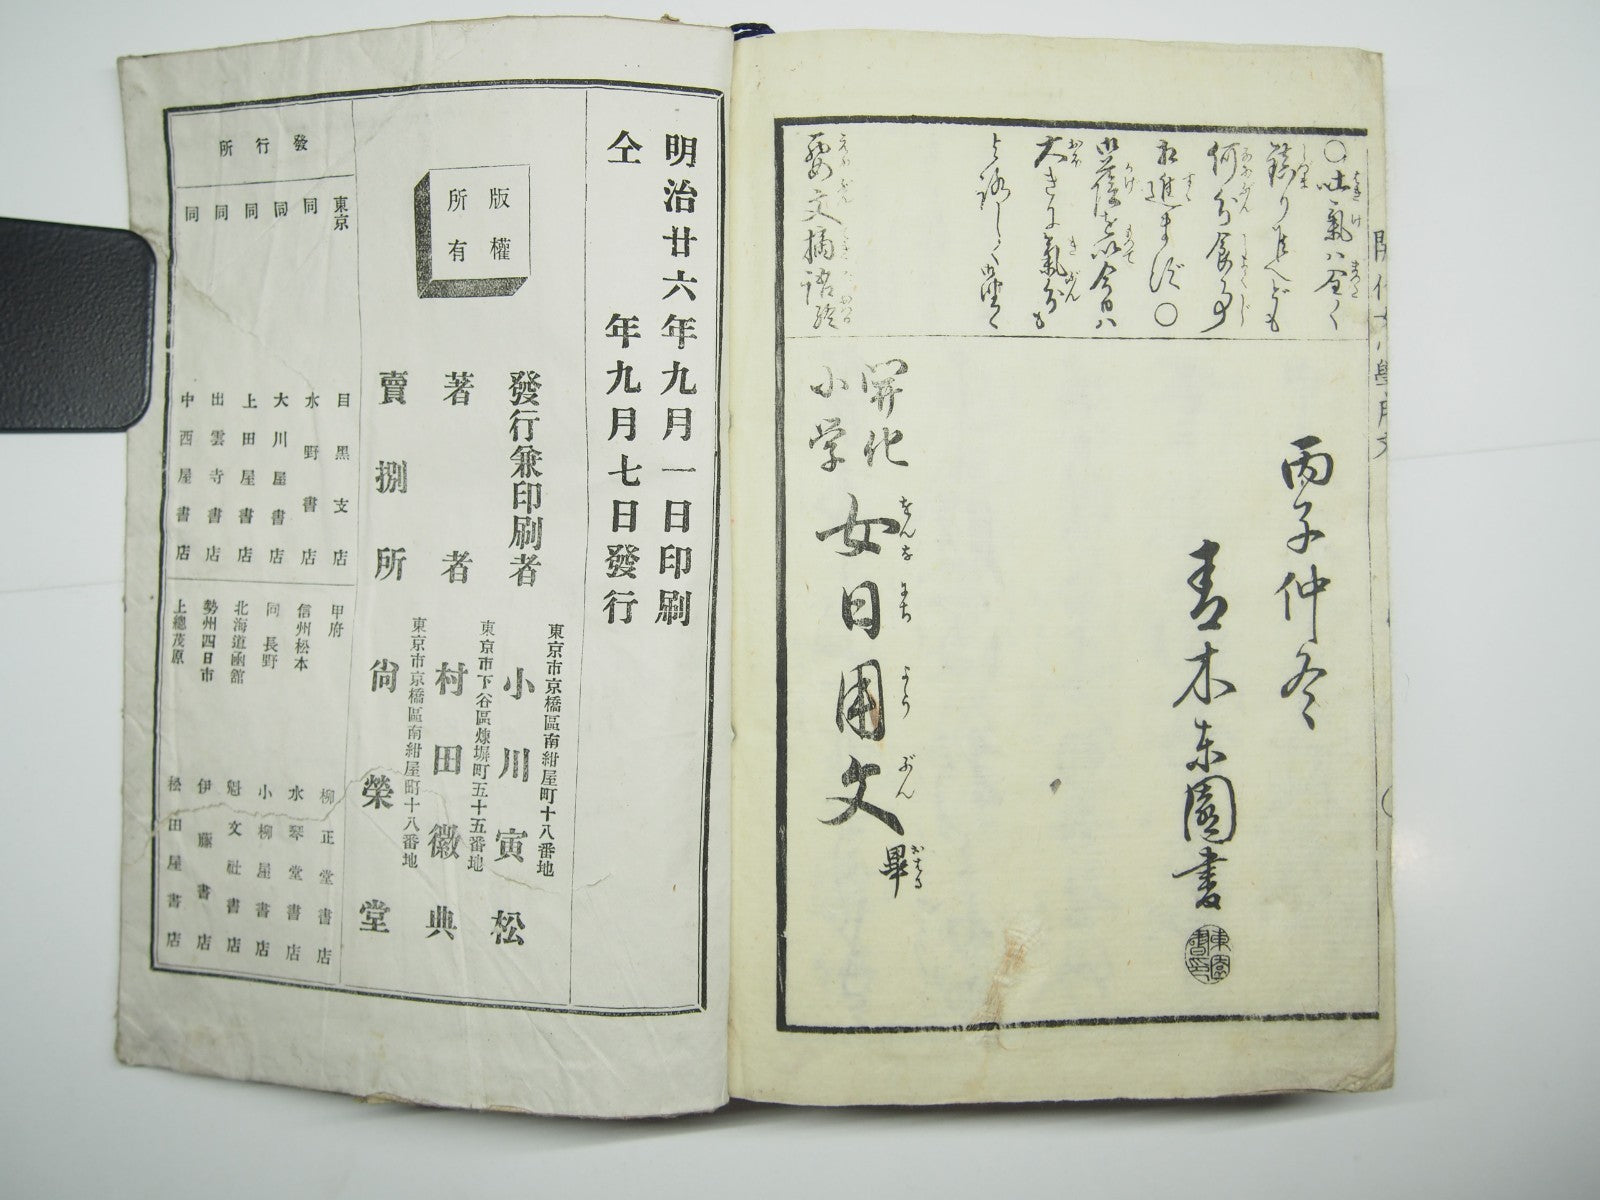 ○吐氣ハ全く
鎮り候へども
何分食事
相進ま須○
御蔭を以今日ハ
大きに氣分も
よろしく御座候
要文摘語終
丙子仲冬
青木東園書
東園書印
開化
小学
女日用文
畢
明治廿六年九月一日印刷
仝年九月七日發行
版權
所有
東京市京橋區南紺屋町十八番地
發行兼印刷者 小川寅松
東京市下谷區煉塀町五十五番地
著者 村田徽典
東京市京橋區南紺屋町十八番地
賣捌所 尙榮堂
發行所
東京 目黒支店
同 水野書店
同 大川屋書店
同 上田屋書店
同 出雲寺書店
同 中西屋書店
甲府 柳正堂書店
信州松本 水琴堂書店
同長野 小柳屋書店
北海道函館 魁文社書店
勢州四日市 伊藤書店
上總茂原 松田屋書店